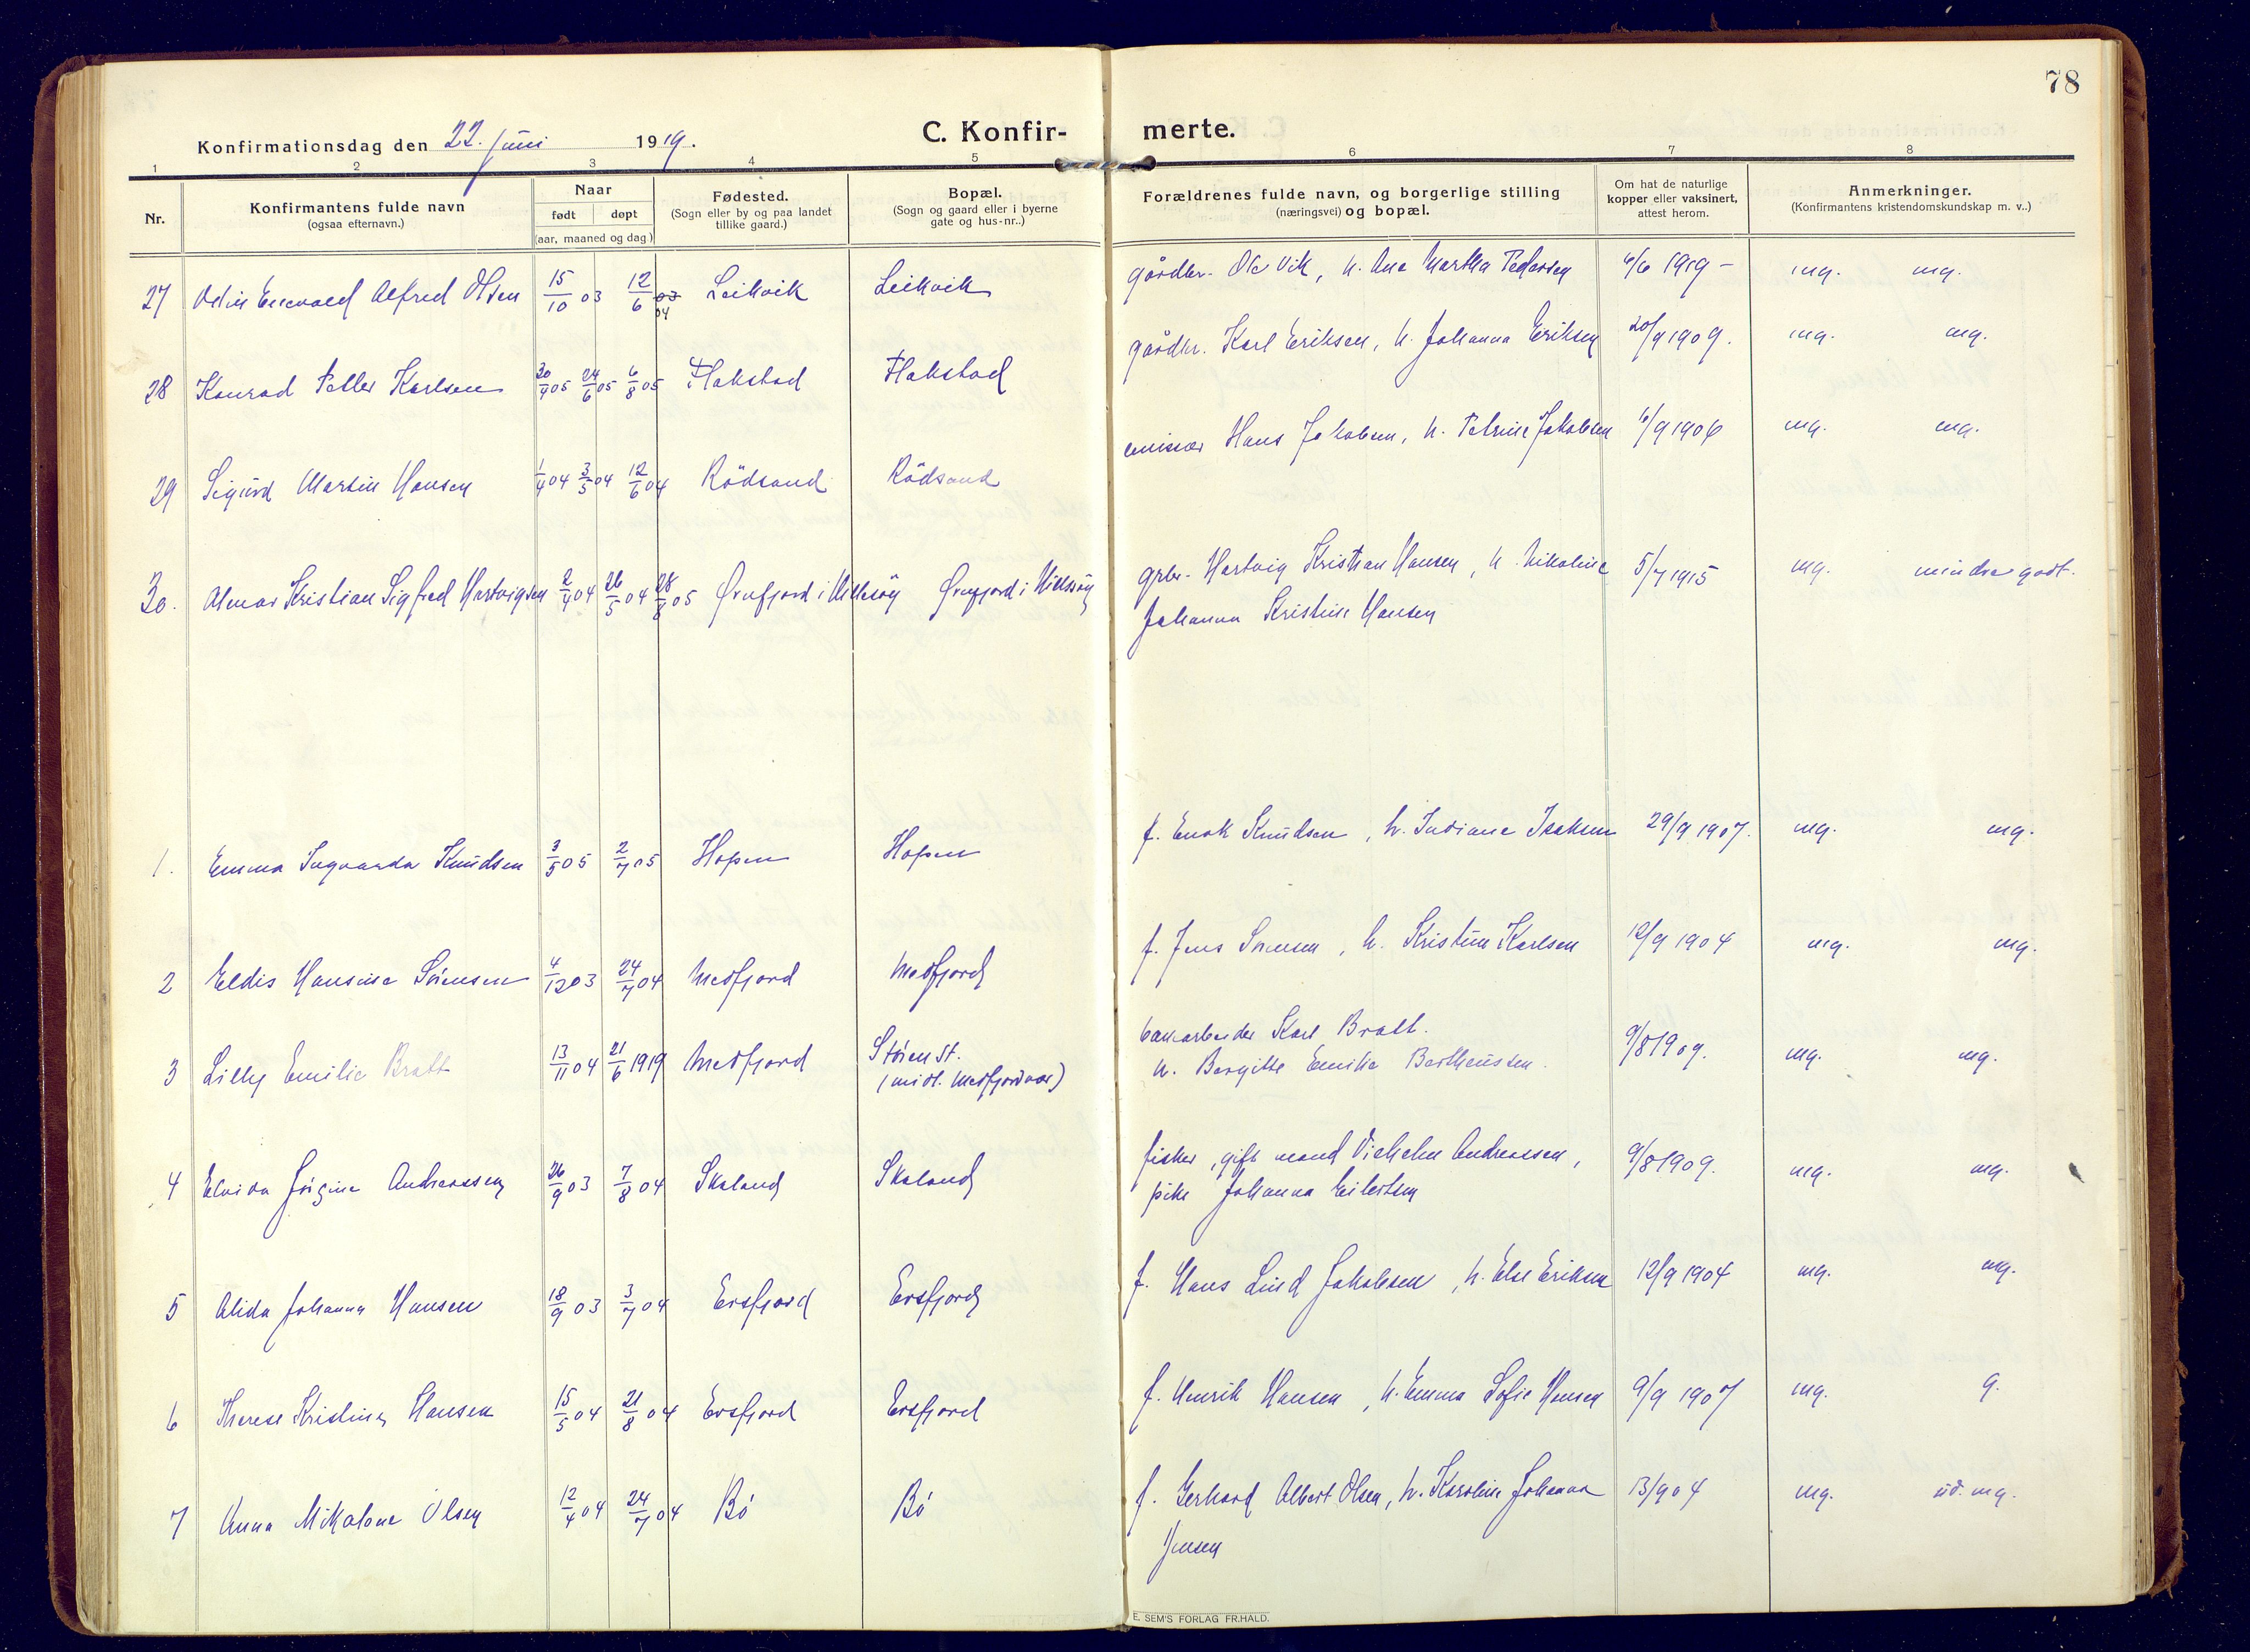 78
Konfirmationsdag den 22. juni 1919.
C. Konfir-
merte.
1 2 3 4 5 6 7 8
Nr.
Konfirmantens fulde navn
(ogsaa efternavn.)
Naar
født døpt
(aar, maaned og dag)
Fødested.
(Sogn eller by og paa landet
tillike gaard.)
Bopæl.
(Sogn og gaard eller i byerne
gate og hus-nr..)
Forældrenes fulde navn, og borgerlige stilling
(næringsvei) og bopæl.
Om hat de naturlige
kopper eller vaksinert,
attest herom.
Anmerkninger.
(Konfirmantens kristendomskundskap m. v..)
27 Odin Alfred Olsen 15/10 03 12/6 03 04 Leikvik Leikvik gårdbr. Ole Vik, h. Ane Martha Pedersen 6/6 1919 – mg. mg.
28 Konrad Peder Karlsen 24/6 05 6/8 05 Flakstad Flakstad gårdbr. Karl Eriksen, h. Johanna Eriksen 20/9 1909. mg. mg.
29 Sigurd Martin Hansen 1/4 04 3/5 04 12/6 04 Rödsand Rödsand emissær Hans Jakobsen, h. Petrine Jakobsen /9 1906 mg. mg.
30. Almar Kristian Sigfred Hartvigsen 2/4 04 26/5 04 28/8 05 Ørnfjord i Hillesöy Ørnfjord i Hillesöy grbr. Hartvig Kristian Hansen, h. Nikoline 5/7 1915 mg. mindre godt.
Johanna Kristine Hansen
1. Emma Ingvarda Knudsen 3/5 05 2/7 05 Hopen Hopen f. Enok Knudsen, h. Indiane Isaksen 29/9 1907. mg. mg.
2 Eldis Hansine Sörensen 4/12 03 24/7 04 Medfjord Medfjord f. Jens Sörensen, h. Kristine Karlsen 12/9 1904 mg. mg.
3 Lilly Emilie Bratt 13/11 04 21/6 1919 Medfjord Stören St. banearbeider Karl Bratt. 9/8 1909. mg. mg.
(midl. Medfjordvær) h. Bergitte Emilie Bertheussen.
4 Elvida Jörgine Andreassen 26/9 03 7/8 04 Skaland Skaland fisker, gift mand Vilhelm Andreassen, 9/8 1909. mg. mg.
pike Johanna Eilertsen
5 Alida Johanna Hansen 18/9 03 3/7 04 Ersfjord Ersfjord f. Hans Lind Jakobsen, h. Else Eriksen 12/9 1904 mg. mg.
6 Therese Kristine Hansen 15/5 04 21/8 04 Ersfjord Ersfjord f. Henrik Hansen, h. Emma Sofie Hansen 9/9 1907 mg. g.
7 Anna Mikalone Olsen 12/4 04 24/7 04 Bö Bö f. Gerhard Albert Olsen, h. Karoline Johanna 13/9 04 mg. ud. mg.
Jensen
E. SEM'S FORLAG FR.HALD.